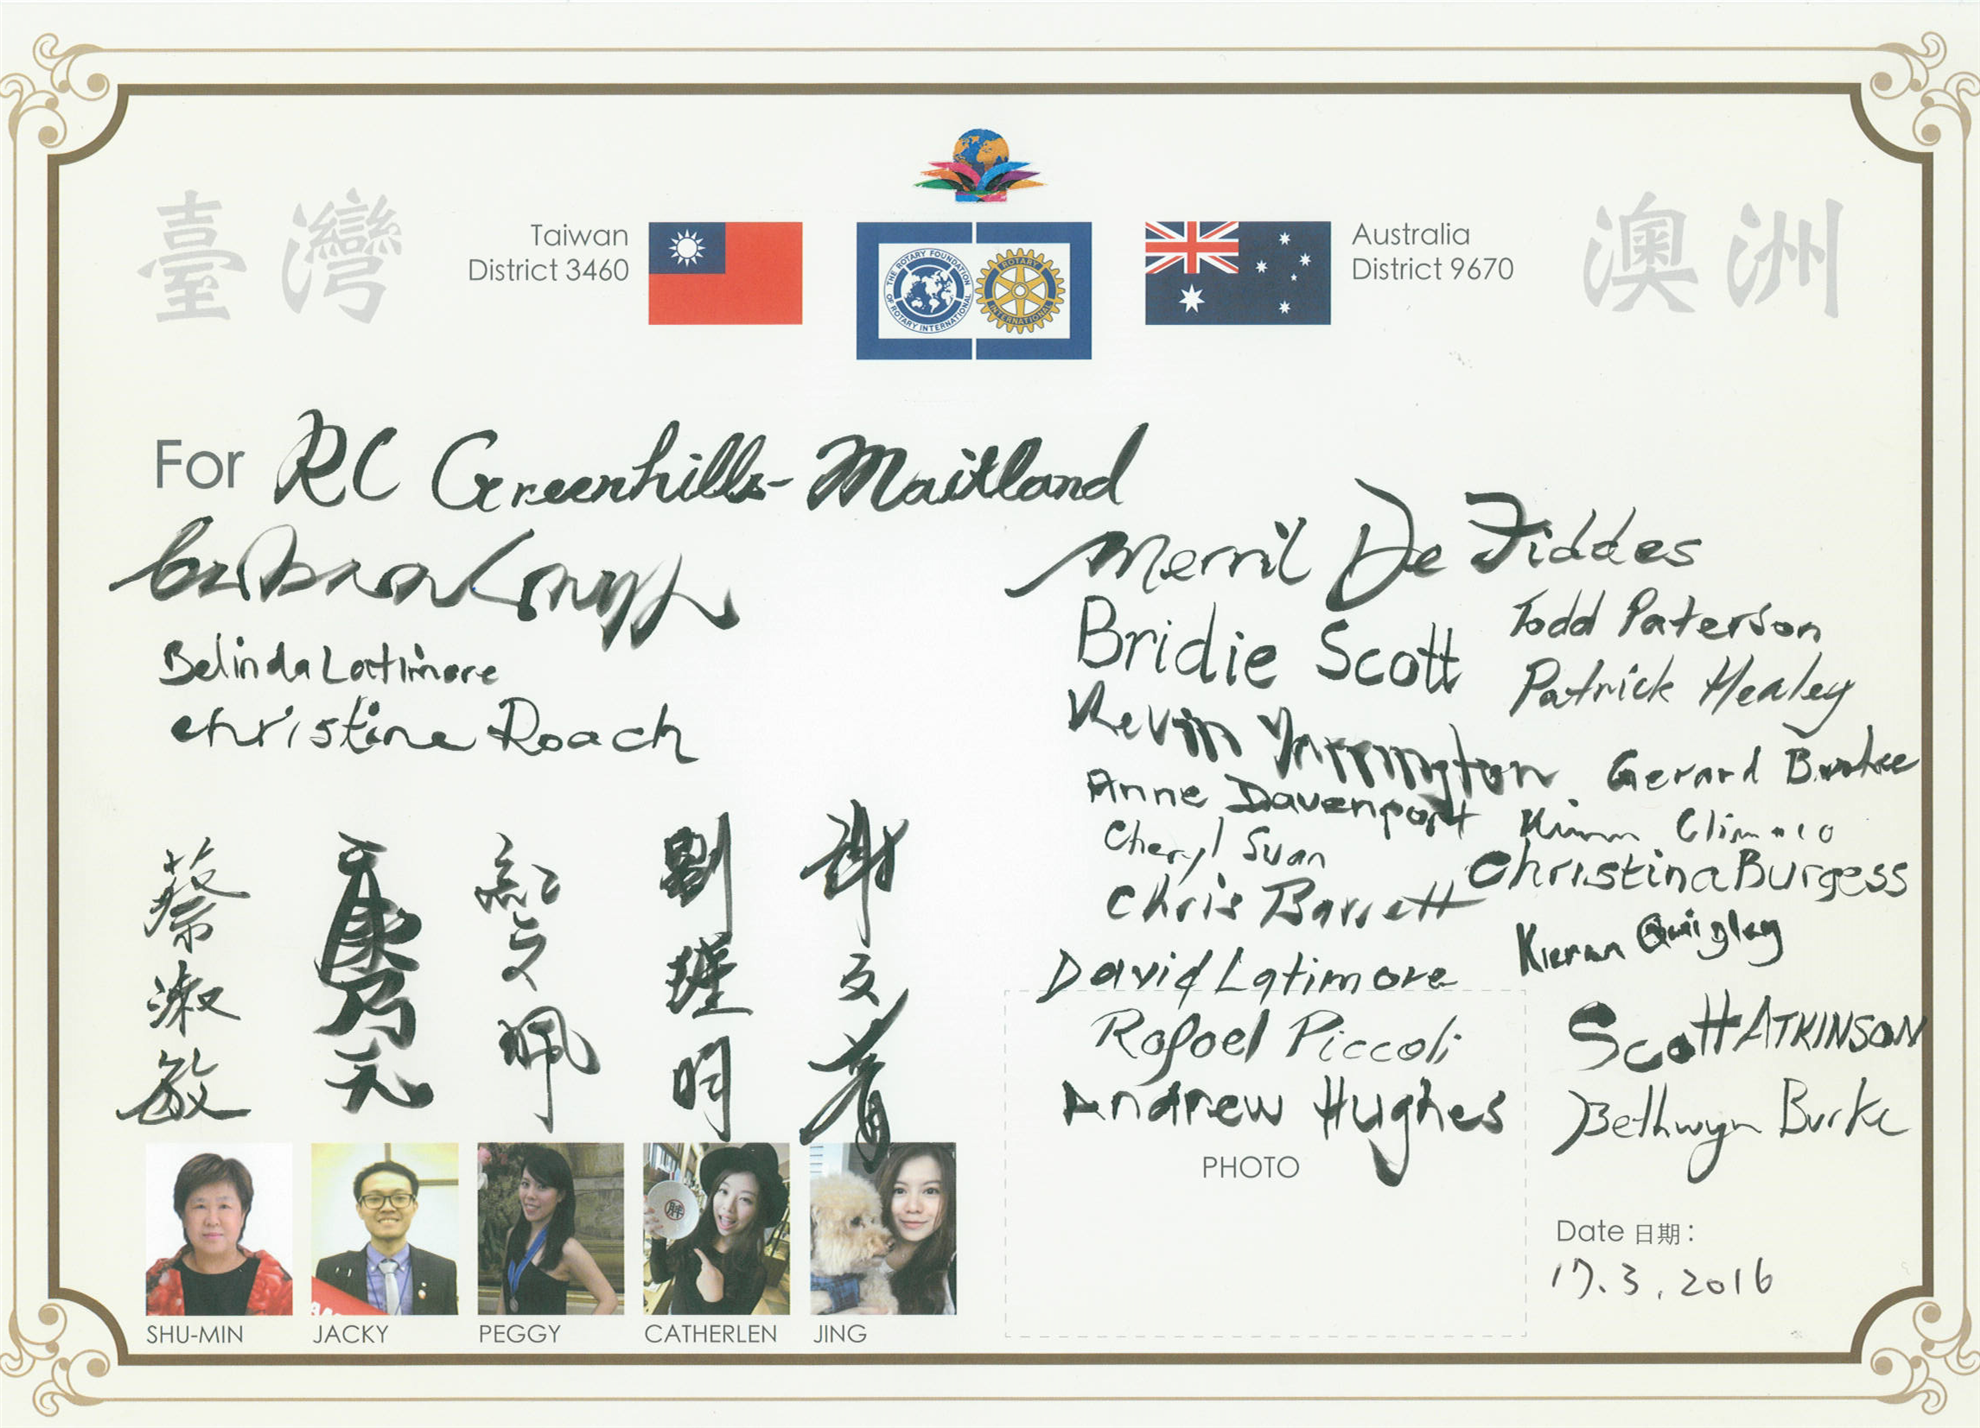 臺灣
Taiwan
District 3460
THE ROTARY FOUNDATION
OF ROTARY INTERNATIONAL
ROTARY
INTERNATIONAL
Australia
District 9670
澳洲
For RC Greenhills-Maitland
Belinda Latimore
Christine Roach
Merril De Fiddes
Bridie Scott
Todd Paterson
Patrick Healey
Kevin Yarrington
Gerard
Anne Davenport
Cheryl Swan
Christina Burgess
Chris Barrett
Kieran Quigley
David Latimore
Rafael Piccoli
Scott ATKINSON
Andrew Hughes
Bethwyn Burke
蔡淑敏
文珮
劉瑾明
謝文菁
PHOTO
Date 日期：
17.3.2016
SHU-MIN
JACKY
PEGGY
CATHERLEN
JING